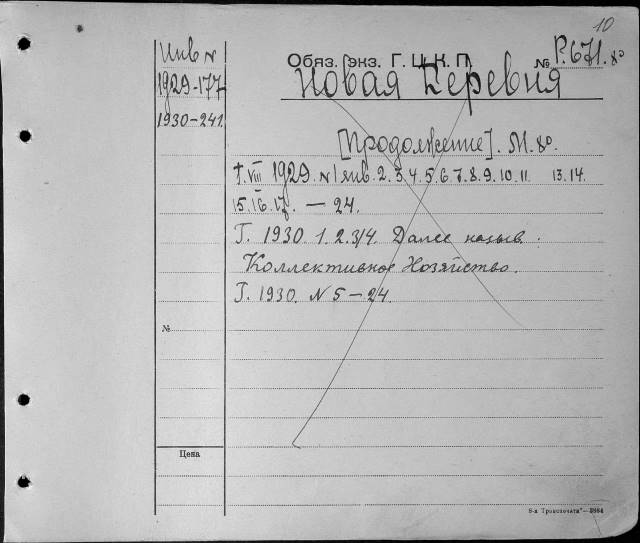 10
Инв №
Обяз. экз. Г. Ц. К. П.
№ Р.671. 8°
1929-177
Новая Деревня
1930-241.
[Продолжение]. М. 8°.
Т. VIII 1929. № 1 янв. 2. 3. 4. 5. 6. 7. 8. 9. 10. 11. 13. 14.
15. 16. 17. — 24.
Г. 1930. 1. 2. 3/4. Далее назыв.:
Коллективное Хозяйство.
Г. 1930. № 5 — 24.
№
Цена
8-я Транспечати"—3884